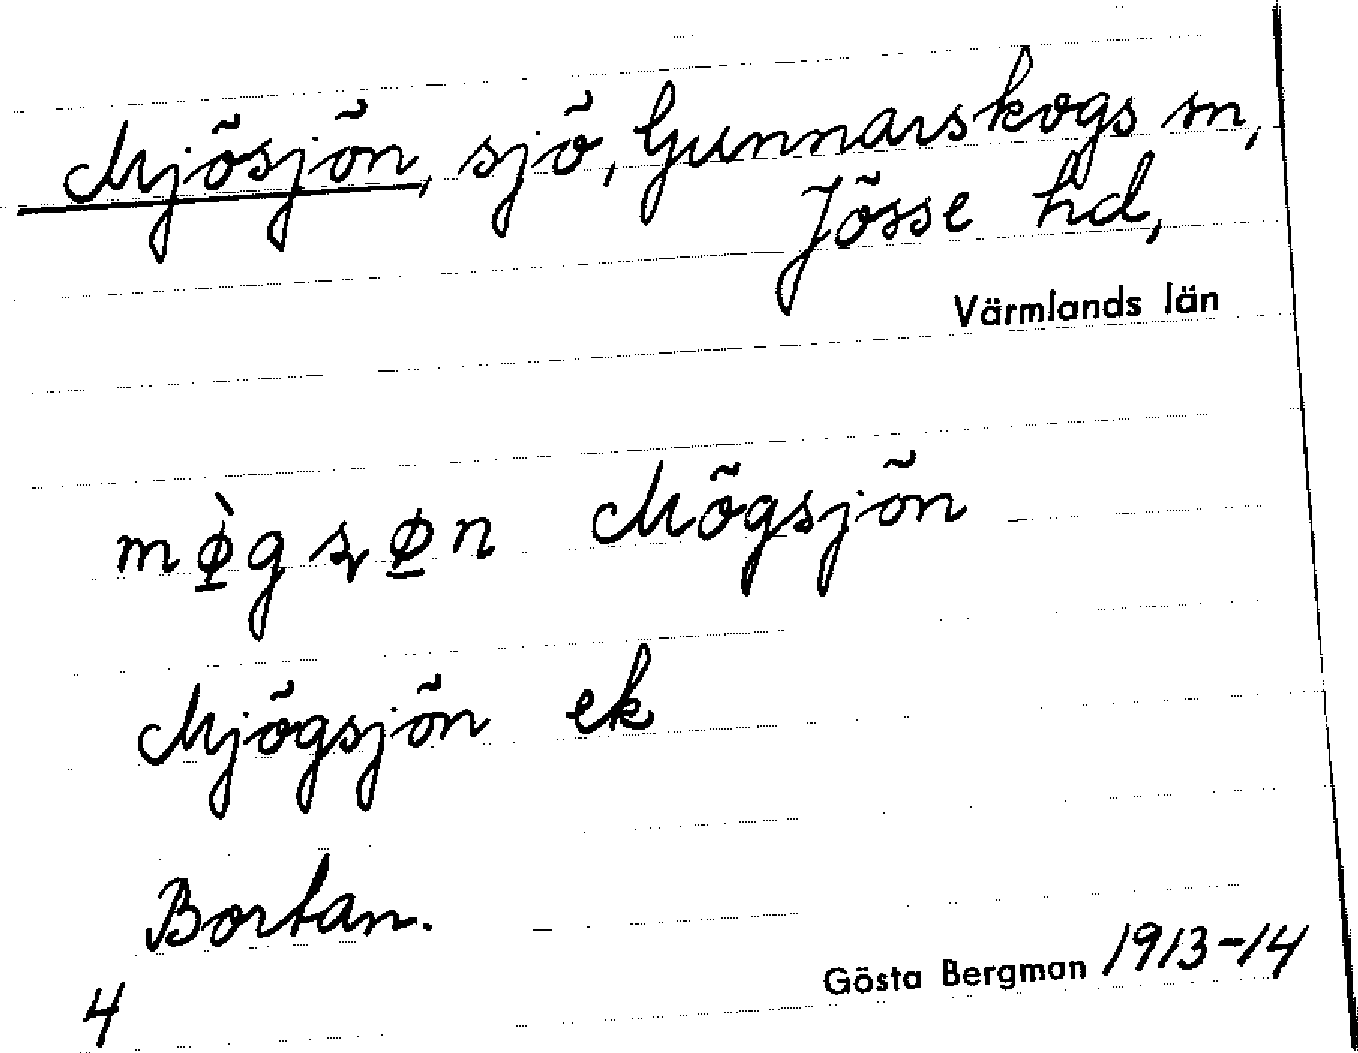 Mjösjön, sjö, Gunnarskogs sn,
Jösse hd,
Värmlands län
Mögsjön
Mjögsjön ek
Bortan.
Gösta Bergman 1913-14
4